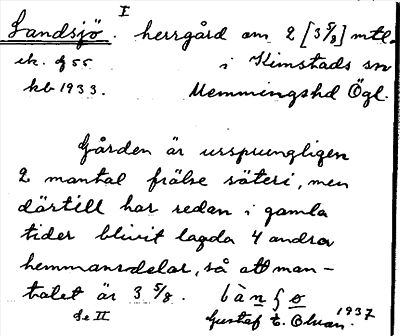 I
Landsjö. herrgård om 2 [3 5/8] mtl.
ek. 955 i Kimstads sn
kb 1933. Memmingshd Ögl.
Gården är ursprungligen
2 mantal frälse säteri, men
därtill har redan i gamla
tider blivit lagda 4 andra
hemmansdelar, så att man-
talet är 3 5/8.
Se II Gustaf E. Olsson. 1937